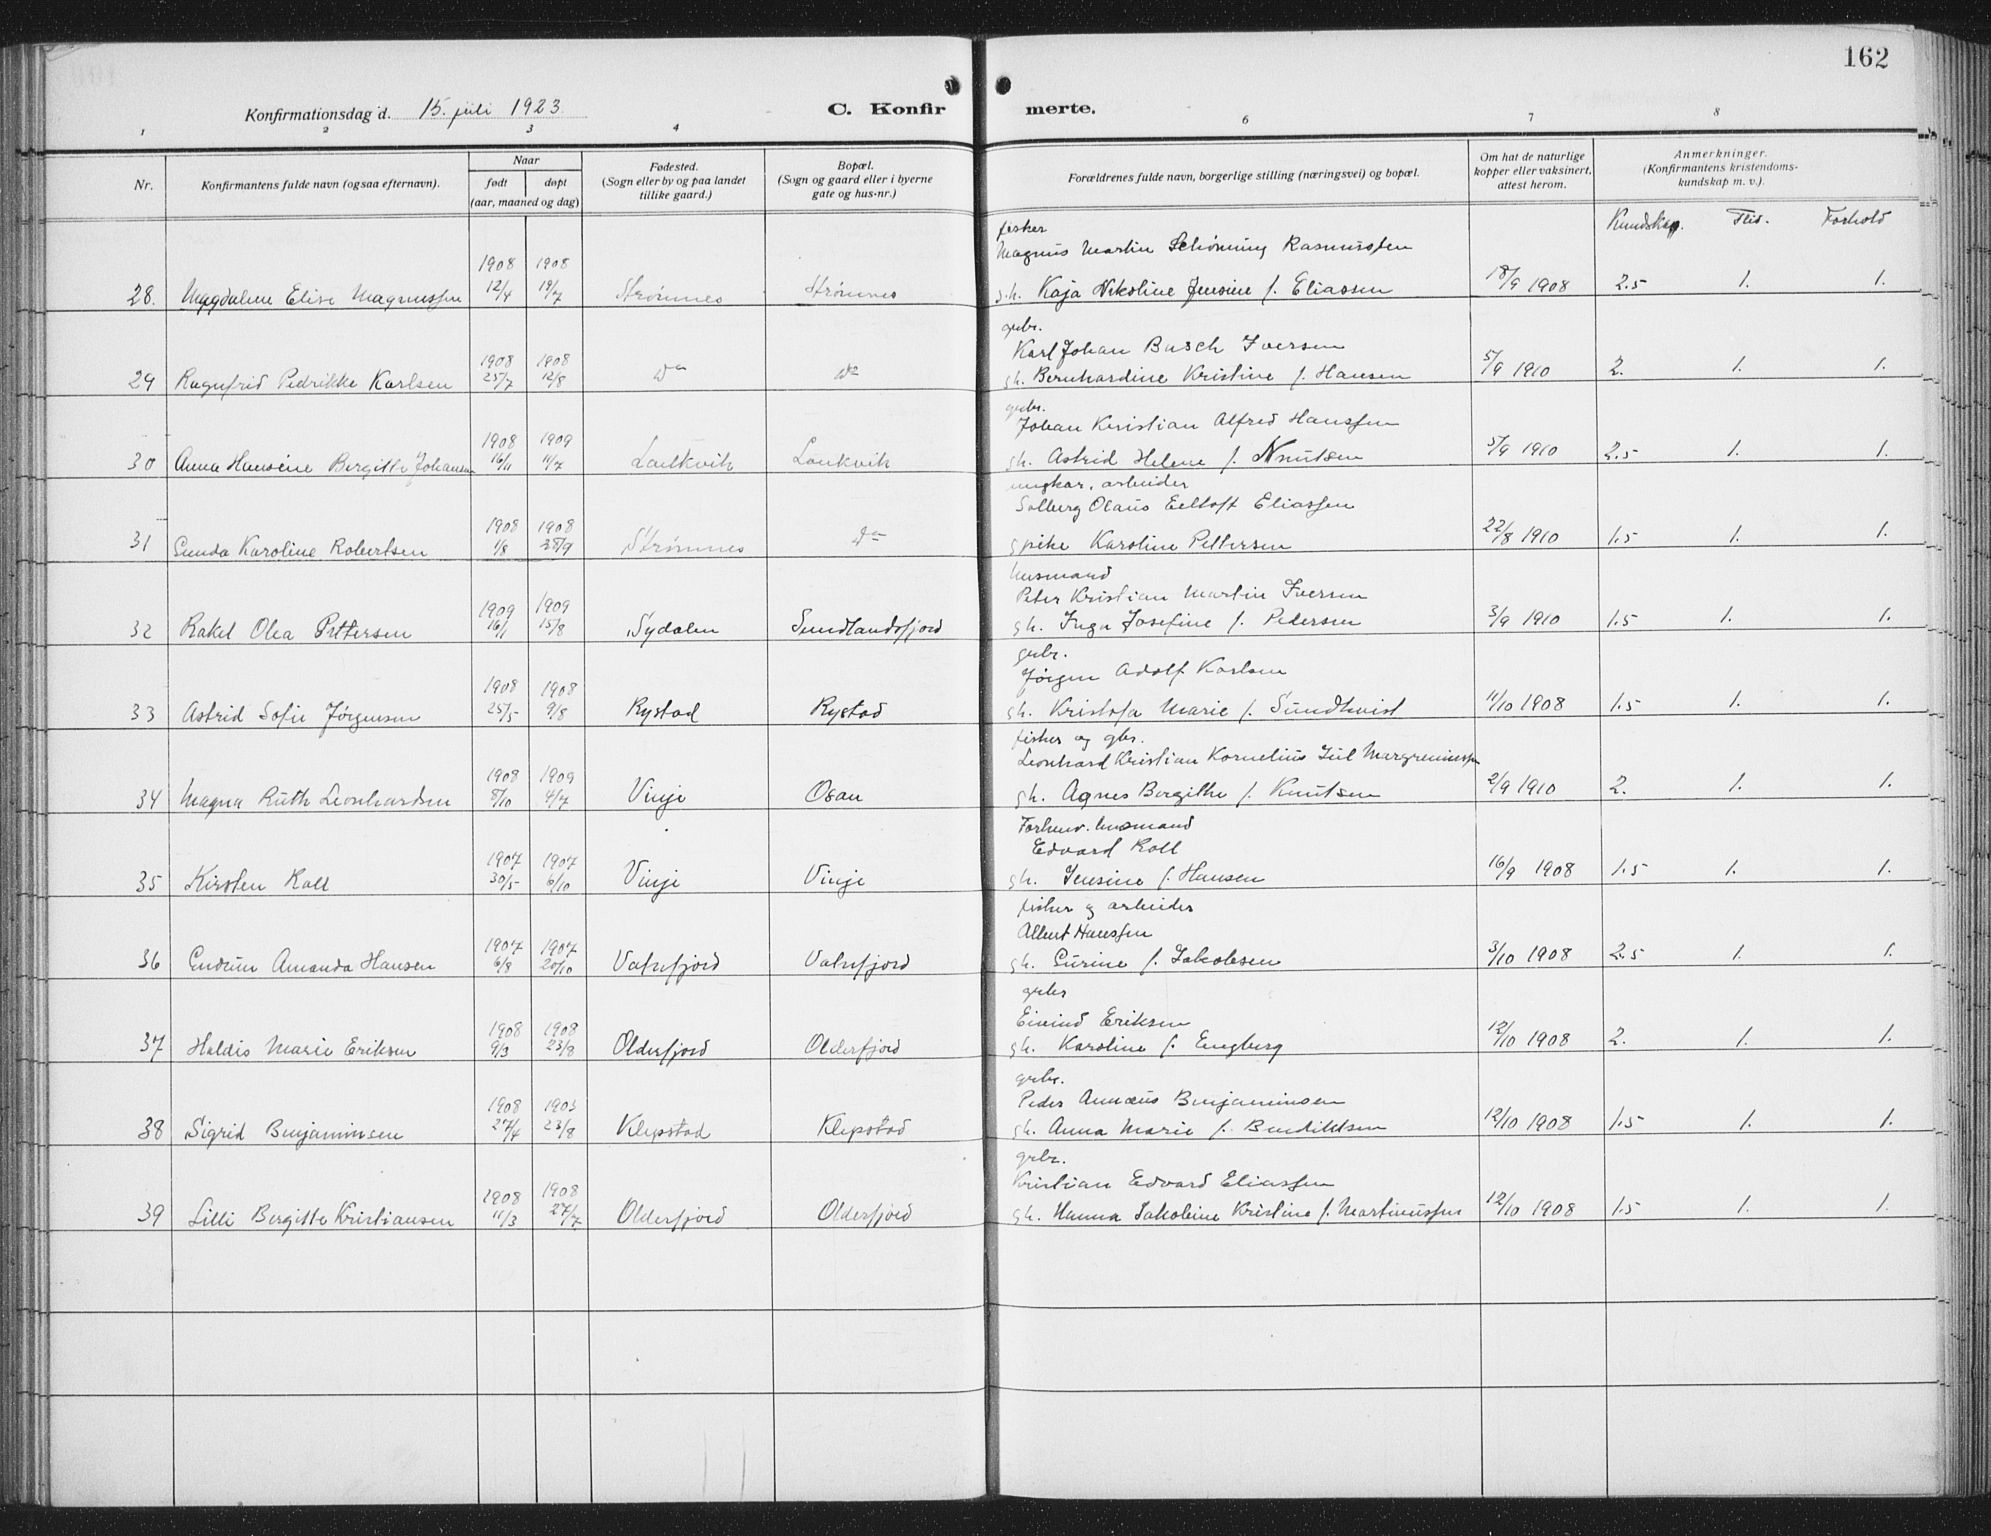 162
Konfirmationsdag d. 15. juli 1923.
C. Konfirmerte.
1 2 3 4 6 7 8
Nr.
Konfirmantens fulde navn (ogsaa efternavn).
Naar
født
døpt
(aar, maaned og dag)
Fødested.
(Sogn eller by og paa landet
tillike gaard.)
Bopæl.
(Sogn og gaard eller i byerne
gate og hus-nr.)
Forældrenes fulde navn, borgerlige stilling (næringsvei) og bopæl.
Om hat de naturlige
kopper eller vaksinert,
attest herom.
Anmerkninger.
(Konfirmantens kristendoms-
kundskap m. v.).
Kundskap. Flid. Forhold
fisker
Magnus Martin Schönning Rasmussen
1908 1908
28. Magdalene Elise Magnussen 12/4 19/7 Strømnes Strømnes g.h. Kaja Nikoline Jensine f. Eliassen 18/9 1908 2.5 1. 1.
grbr.
Karl Johan Busch Iversen
1908 1908
29 Ragnfrid Pedrikke Karlsen 25/7 12/8 do do gh. Bernhardine Kristine f. Hansen 5/9 1910 2. 1. 1.
grbr.
Johan Kristian Alfred Hanssen
1908 1909
30 Anna Hansine Bergitte Johansen 16/11 11/7 Laukvik Laukvik gh. Astrid Helene f. Knutsen 5/9 1910 2.5 1. 1.
ungkar, arbeider
Solberg Olaus Eeltoft Eliassen
1908 1908
31 Gunda Karoline Robertsen 1/8 28/9 Strømnes do g pike Karoline Pettersen 22/8 1910 1.5 1. 1.
husmand
Peter Kristian Martin Iversen
1909 1909
32 Rakel Olea Pettersen 16/1 15/8 Sydalen Sundlandsfjord gh. Inga Josefine f. Pedersen 3/9 1910 1.5 1. 1.
grbr.
Jørgen Adolf Karlsen
1908 1908
33 Astrid Sofie Jørgensen 25/5 9/8 Rystad Rystad gh. Kristofa Marie f. Sundkvist 11/10 1908 1.5 1. 1.
fisker og gbr.
Leonhard Kristian Kornelius Jul Margreniussen
1908 1909
34 Magna Ruth Leonhardsen 8/10 4/7 Vinje Osan gh. Agnes Bergithe f. Knutsen 2/9 1910 2. 1. 1.
Forhenv. husmand
Edvard Roll
1907 1907
35 Kirsten Roll 30/5 6/10 Vinje Vinje gh. Jensine f. Hansen 16/9 1908 1.5 1. 1.
fisker og arbeider
Albert Hanssen
1907 1907
36 Gudrun Amanda Hansen 6/8 20/10 Vatnfjord Vatnfjord gh. Gurine f. Jakobsen 3/10 1908 2.5 1. 1.
grbr
Eivind Eriksen
1908 1908
37 Haldis Marie Eriksen 9/3 23/8 Olderfjord Olderfjord gh. Karoline f. Engberg 12/10 1908 2. 1. 1.
grbr.
Peder Annæus Benjaminsen
1908 1903
38 Sigrid Benjaminsen 27/4 23/8 Klepstad Klepstad gh. Anna Marie f. Bendiktsen 12/10 1908 1.5 1. 1.
grbr.
Kristian Edvard Eliassen
1908 1908
39 Lilli Bergitte Kristiansen 11/3 27/7 Olderfjord Olderfjord gh. Hanna Jakobine Kristine f. Martinussen 12/10 1908 1.5 1. 1.